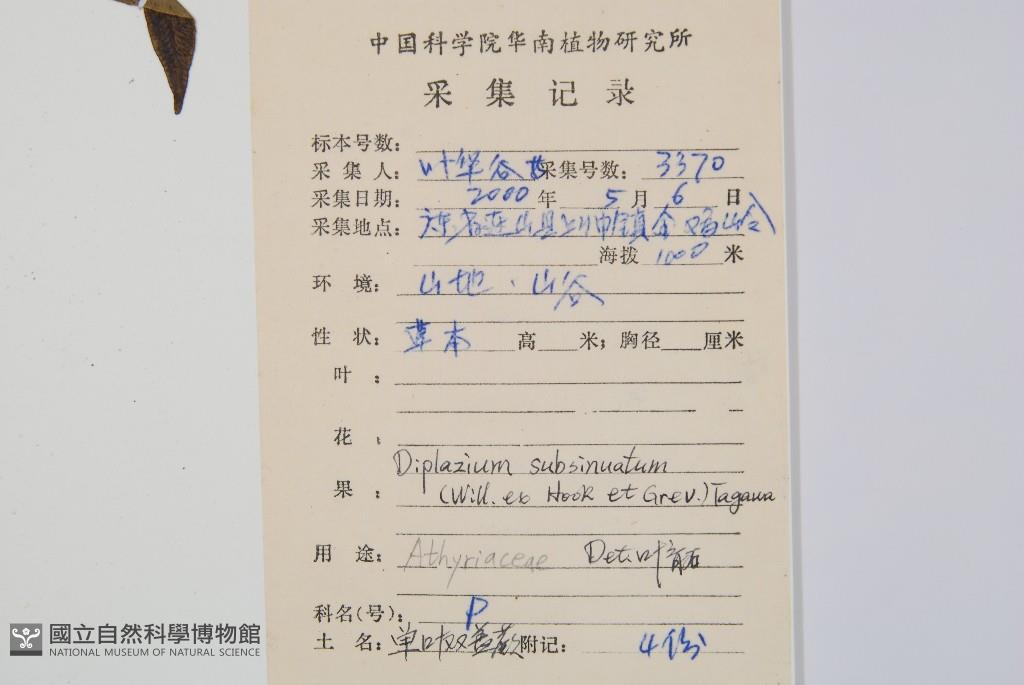 中国科学院华南植物研究所
采集记录
标本号数：
采集人：叶华谷 采集号数：3370
采集日期：2000年5月6日
采集地点：广东省连山县上帅镇
海拨 1000 米
环境：山地、山谷
性状：草本 高 米；胸径 厘米
叶：
花：
Diplazium subsinuatum
果：(Will. ex Hook et Grev.) Tagawa
用途：Athyriaceae Det: 叶育石
科名(号)：P
土名：单叶双盖蕨 附记：4份
國立自然科學博物館
NATIONAL MUSEUM OF NATURAL SCIENCE